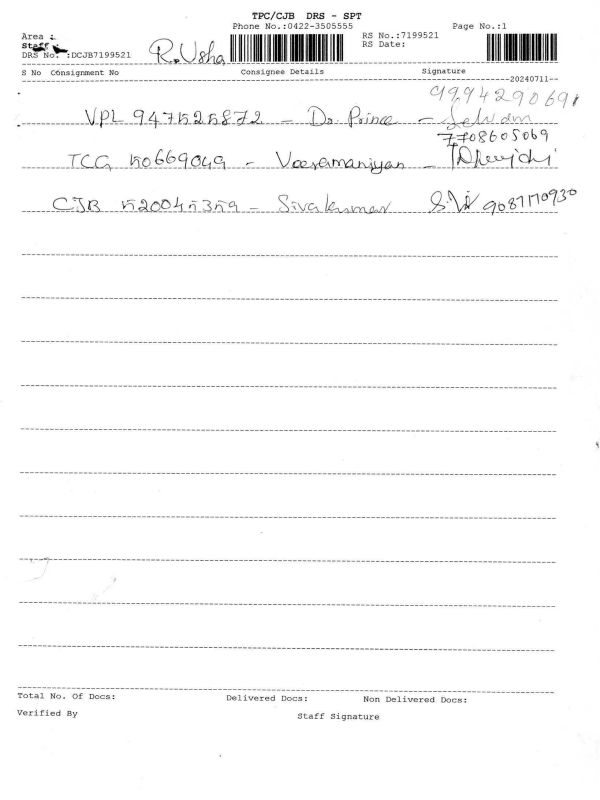 TPC/CJB DRS - SPT
Phone No.:0422-3505555 Page No.:1
Area : RS No.:7199521
Staff RS Date:
DRS No. :DCJB7199521 R. Usha
S No Consignment No Consignee Details Signature
--20240711--
9994290691
VPL 947525872 - Dr. Prince - Selvam
7708605069
TCG 50669049 - Veeramaniyan -
CJB 520045359 - Sivakumar 9087170930
Total No. Of Docs: Delivered Docs: Non Delivered Docs:
Verified By Staff Signature